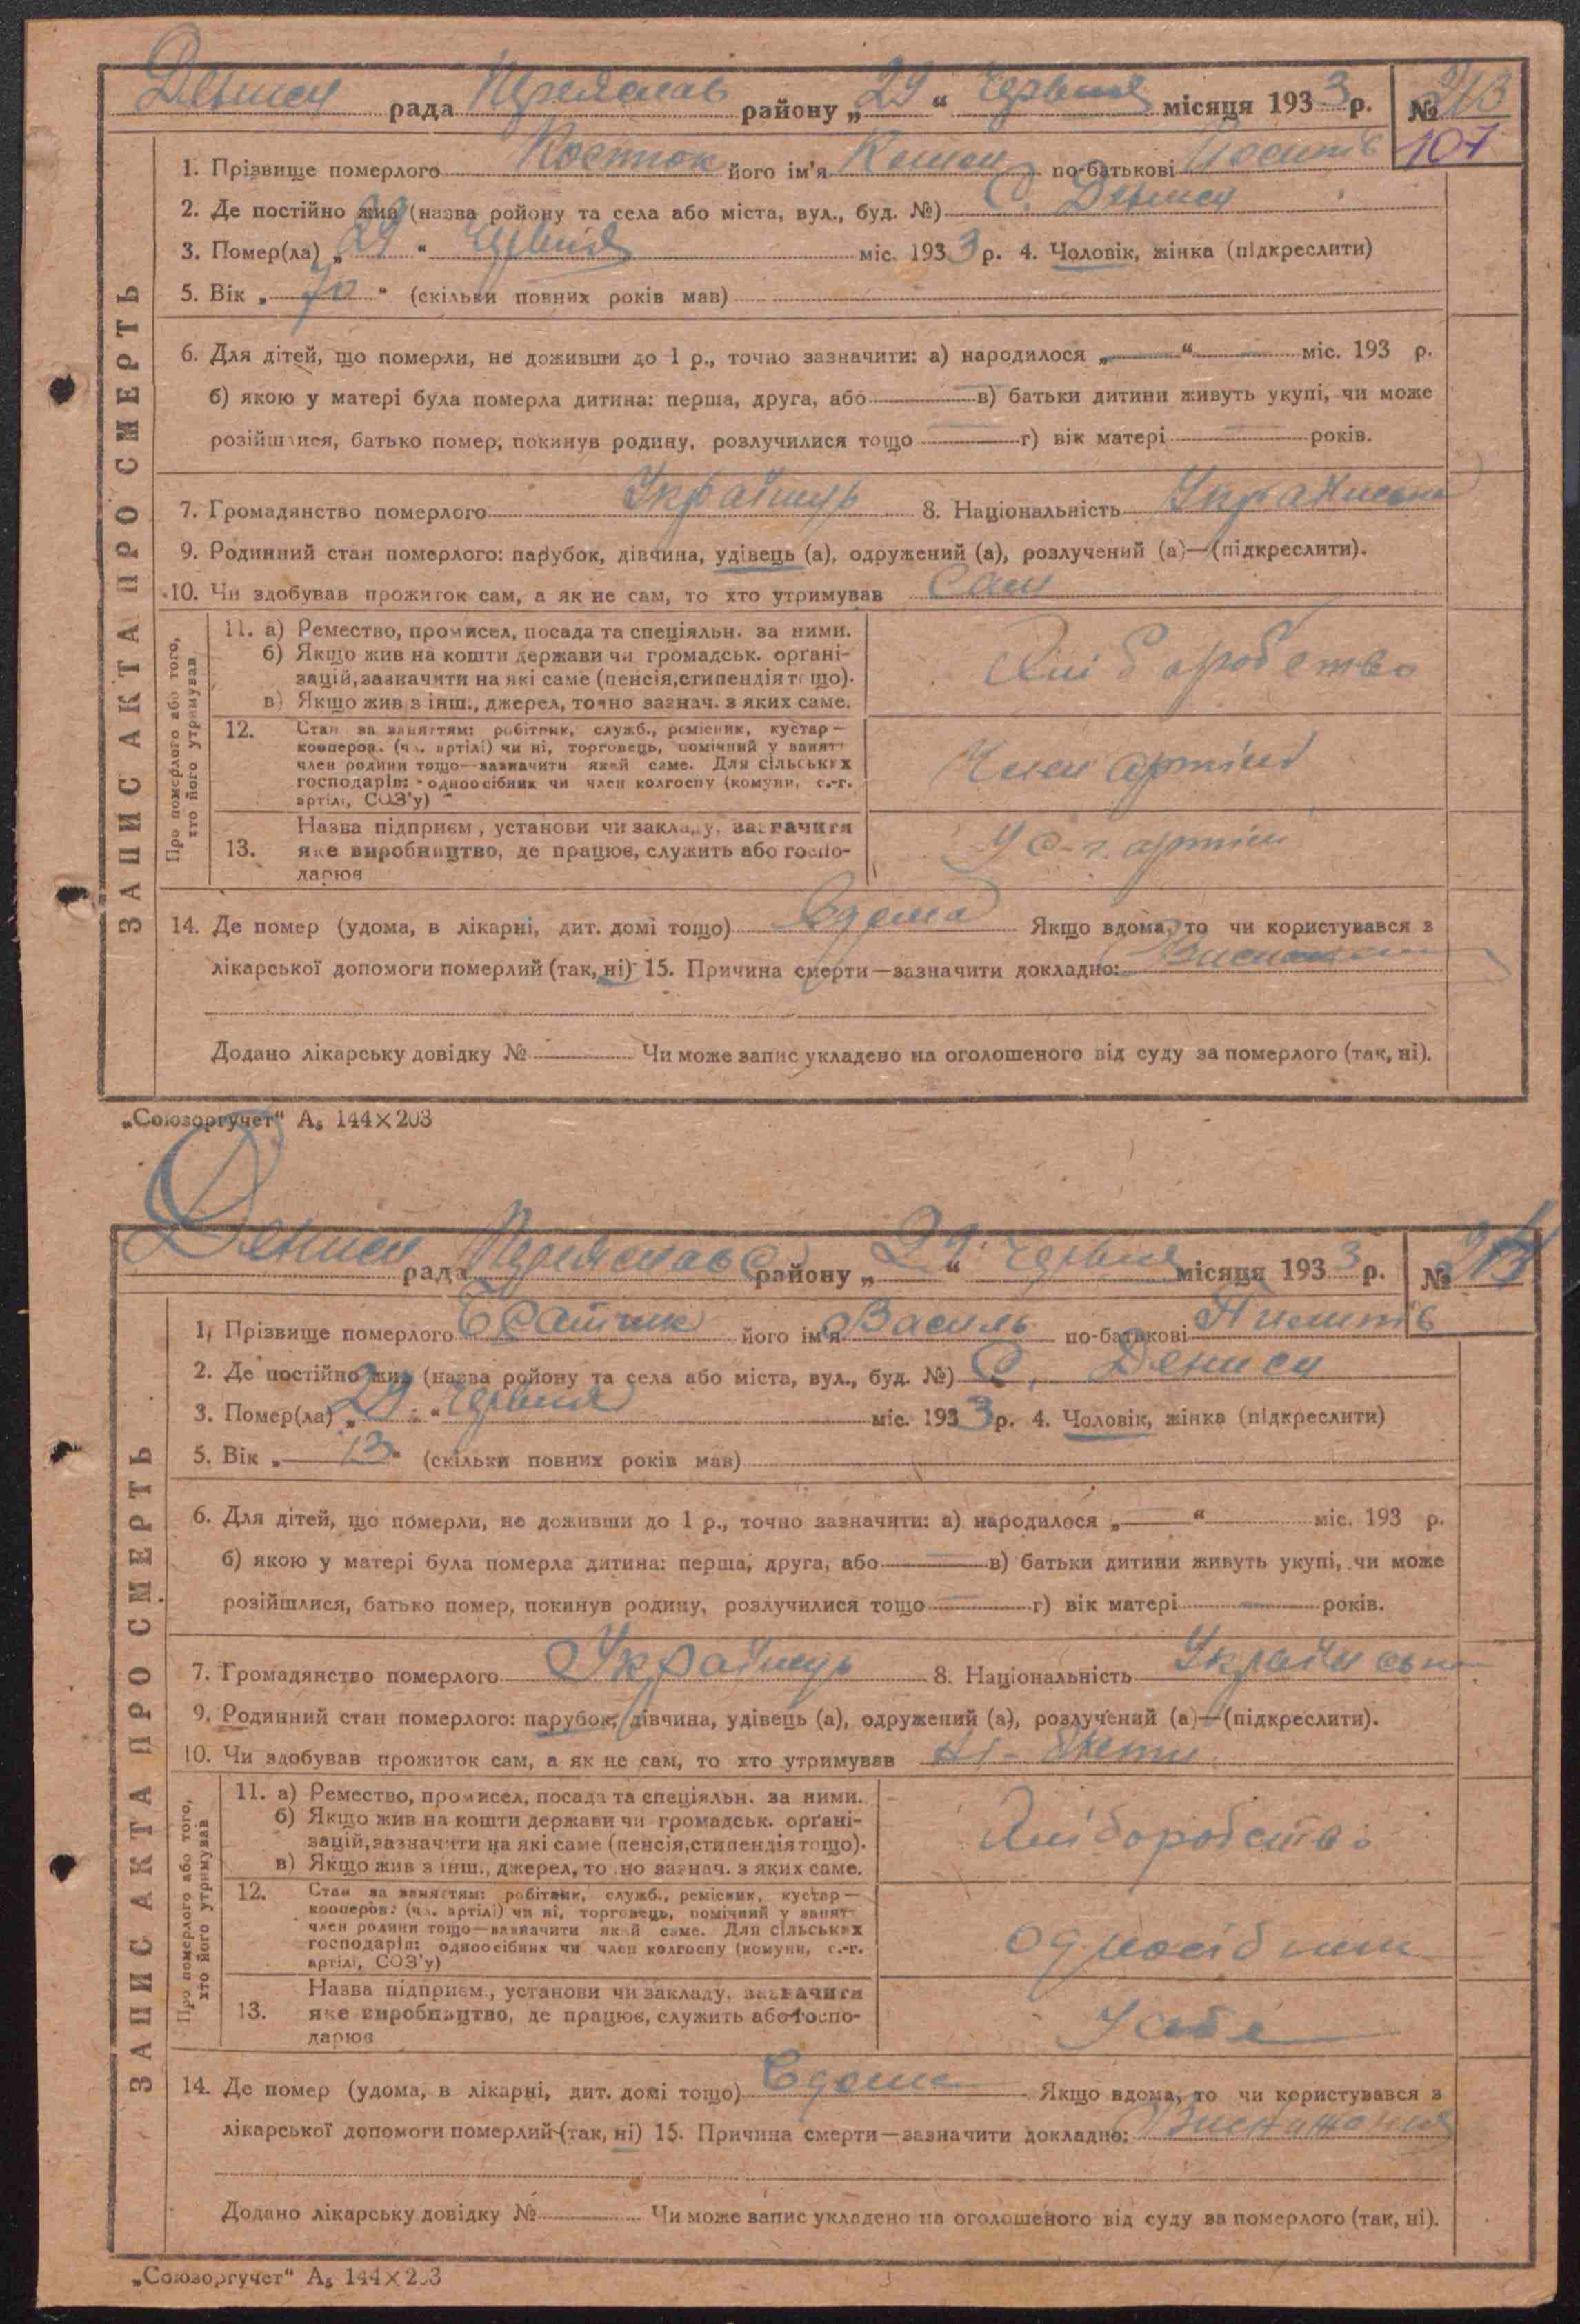 Дениси рада Переяслав району „29“ Червня місяця 1933 р. № 213
107
ЗАПИС АКТА ПРО СМЕРТЬ
1. Прізвище померлого Костюк його ім'я по-батькові
2. Де постійно жив (назва ройону та села або міста, вул., буд. №) С. Дениси
3. Помер(ла) „29“ Червня міс. 1933 р. 4. Чоловік, жінка (підкреслити)
5. Вік „70“ (скільки повних років мав)
6. Для дітей, що померли, не доживши до 1 р., точно зазначити: а) народилося „—“ міс. 193 р.
б) якою у матері була померла дитина: перша, друга, або — в) батьки дитини живуть укупі, чи може
розійшлися, батько помер, покинув родину, розлучилися тощо — г) вік матері — років.
7. Громадянство померлого Українець 8. Національність
9. Родинний стан померлого: парубок, дівчина, удівець (а), одружений (а), розлучений (а)—(підкреслити).
10. Чи здобував прожиток сам, а як не сам, то хто утримував Сам
Про померлого або того, хто його утримував
11. а) Ремество, промисел, посада та спеціяльн. за ними.
б) Якщо жив на кошти держави чи громадськ. органі-
зацій, зазначити на які саме (пенсія, стипендія тощо).
в) Якщо жив з інш., джерел, точно зазнач. з яких саме.
Хліборобство
12. Стан за заняттям: робітник, служб., ремісник, кустар—
кооперов. (чл. артілі) чи ні, торговець, помічний у занят-
член родини тощо—зазначити який саме. Для сільських
господарів: одноосібник чи член колгоспу (комуни, с.-г.
артілі, СОЗ'у)
Член артілі
13. Назва підприєм., установи чи закладу, зазначити
яке виробництво, де працює, служить або госпо-
дарює
У с-г. артілі
14. Де помер (удома, в лікарні, дит. домі тощо) Вдома Якщо вдома, то чи користувався з
лікарської допомоги померлий (так, ні) 15. Причина смерти—зазначити докладно:
Додано лікарську довідку № Чи може запис укладено на оголошеного від суду за померлого (так, ні).
„Союзоргучет“ А5 144×203
Дениси рада Переяслав району „29“ Червня місяця 1933 р. №
ЗАПИС АКТА ПРО СМЕРТЬ
1. Прізвище померлого його ім'я Василь по-батькові
2. Де постійно жив (назва ройону та села або міста, вул., буд. №) С. Дениси
3. Помер(ла) „29“ Червня міс. 1933 р. 4. Чоловік, жінка (підкреслити)
5. Вік „13“ (скільки повних років мав)
6. Для дітей, що померли, не доживши до 1 р., точно зазначити: а) народилося „—“ міс. 193 р.
б) якою у матері була померла дитина: перша, друга, або — в) батьки дитини живуть укупі, чи може
розійшлися, батько помер, покинув родину, розлучилися тощо — г) вік матері — років.
7. Громадянство померлого Українець 8. Національність
9. Родинний стан померлого: парубок, дівчина, удівець (а), одружений (а), розлучений (а)—(підкреслити).
10. Чи здобував прожиток сам, а як не сам, то хто утримував
Про померлого або того, хто його утримував
11. а) Ремество, промисел, посада та спеціяльн. за ними.
б) Якщо жив на кошти держави чи громадськ. органі-
зацій, зазначити на які саме (пенсія, стипендія тощо).
в) Якщо жив з інш., джерел, точно зазнач. з яких саме.
Хліборобство
12. Стан за заняттям: робітник, служб., ремісник, кустар—
кооперов. (чл. артілі) чи ні, торговець, помічний у занят-
член родини тощо—зазначити який саме. Для сільських
господарів: одноосібник чи член колгоспу (комуни, с.-г.
артілі, СОЗ'у)
Одноосібник
13. Назва підприєм., установи чи закладу, зазначити
яке виробництво, де працює, служить або госпо-
дарює
У себе
14. Де помер (удома, в лікарні, дит. домі тощо) Вдома Якщо вдома, то чи користувався з
лікарської допомоги померлий (так, ні) 15. Причина смерти—зазначити докладно: Виснаження
Додано лікарську довідку № Чи може запис укладено на оголошеного від суду за померлого (так, ні).
„Союзоргучет“ А5 144×203